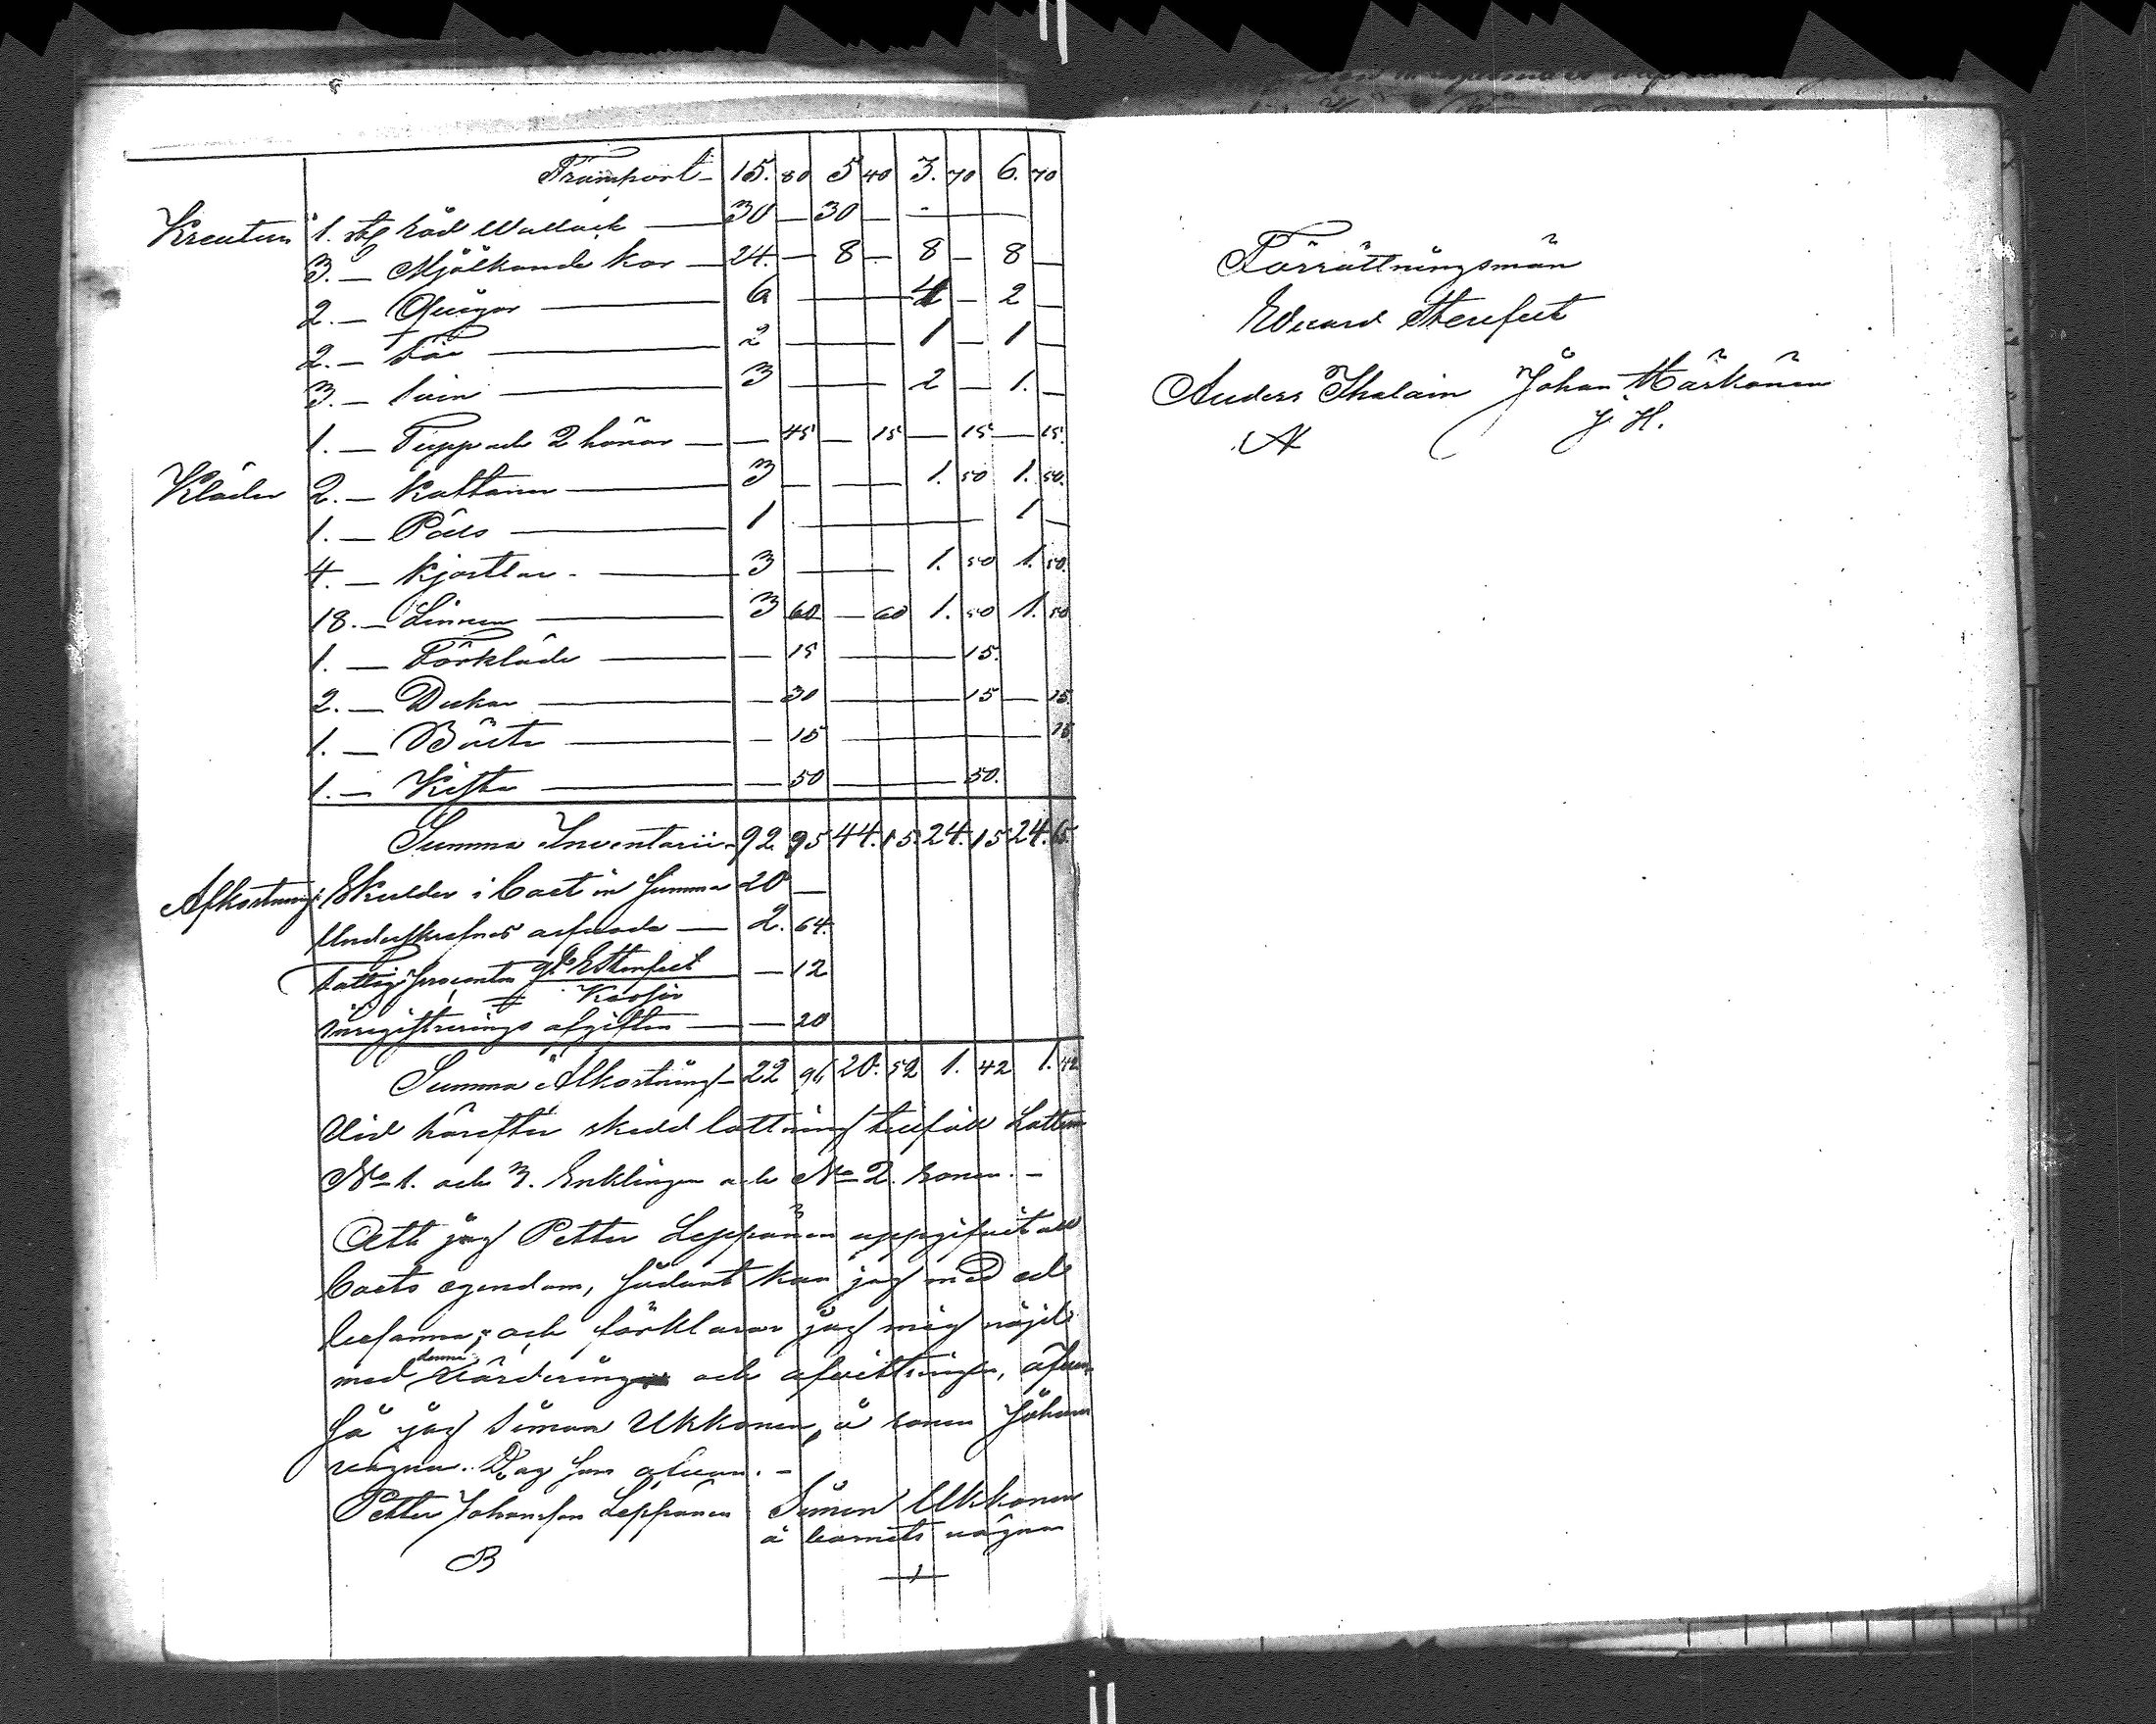 Transport 15. 80 5 40 3. 70 6. 70
Kreatur 1. st. röd Wallack 30 — 30 —
3. — Mjölkande kor 24. — 8 — 8 — 8 —
2. — Qvigor 6 4 — 2 —
2. — Får 2 1 — 1 —
3. — Svin 3 2 — 1. —
1. — Tupp och 2 hönor — 45 — 15 — 15 — 15.
Kläder 2. — Kaftaner 3 — 1. 50 1. 50.
1. — Päls 1 1 —
4. — Kjortlar 3 1. 50 1. 50.
18. — Linnen 3 60 — 60 1. 50 1. 50
1. — Förkläde — 15 15.
2. — Dukar — 30 15 — 15.
1. — Bälte — 15 15
1. — Kista — 50 50.
Summa Inventarii 92. 95 44. 15. 24. 15 24. 65.
Afkortning: Skulder i boet in summa 20 —
Underskrefnes arfvode — 2. 64.
Fattigprocenten — 12
Inregistrerings afgiften — 20
Summa Afkortning 22 96 20. 52 1. 42 1. 42
Vid härefter skedd lottning tillföll Lotten
No 1. och 3. Enklingen och No 2. sonen. —
Att jag Petter Leppänen uppgifvit all
boets egendom, sådant kan jag med ed
besanna, och förklarar jag mig nöjd
med denna värdering och afvittringen, äfven
så jag Simon Ukkonen, å sonen Johans
vägnar. Dag som ofvan. —
Petter Johansson Leppänen Simon Ukkonen
å barnets vägnar
B
Förrättningsmän
Edvard Stenfelt
Anders Ihalain Johan Härkönen
J. H.